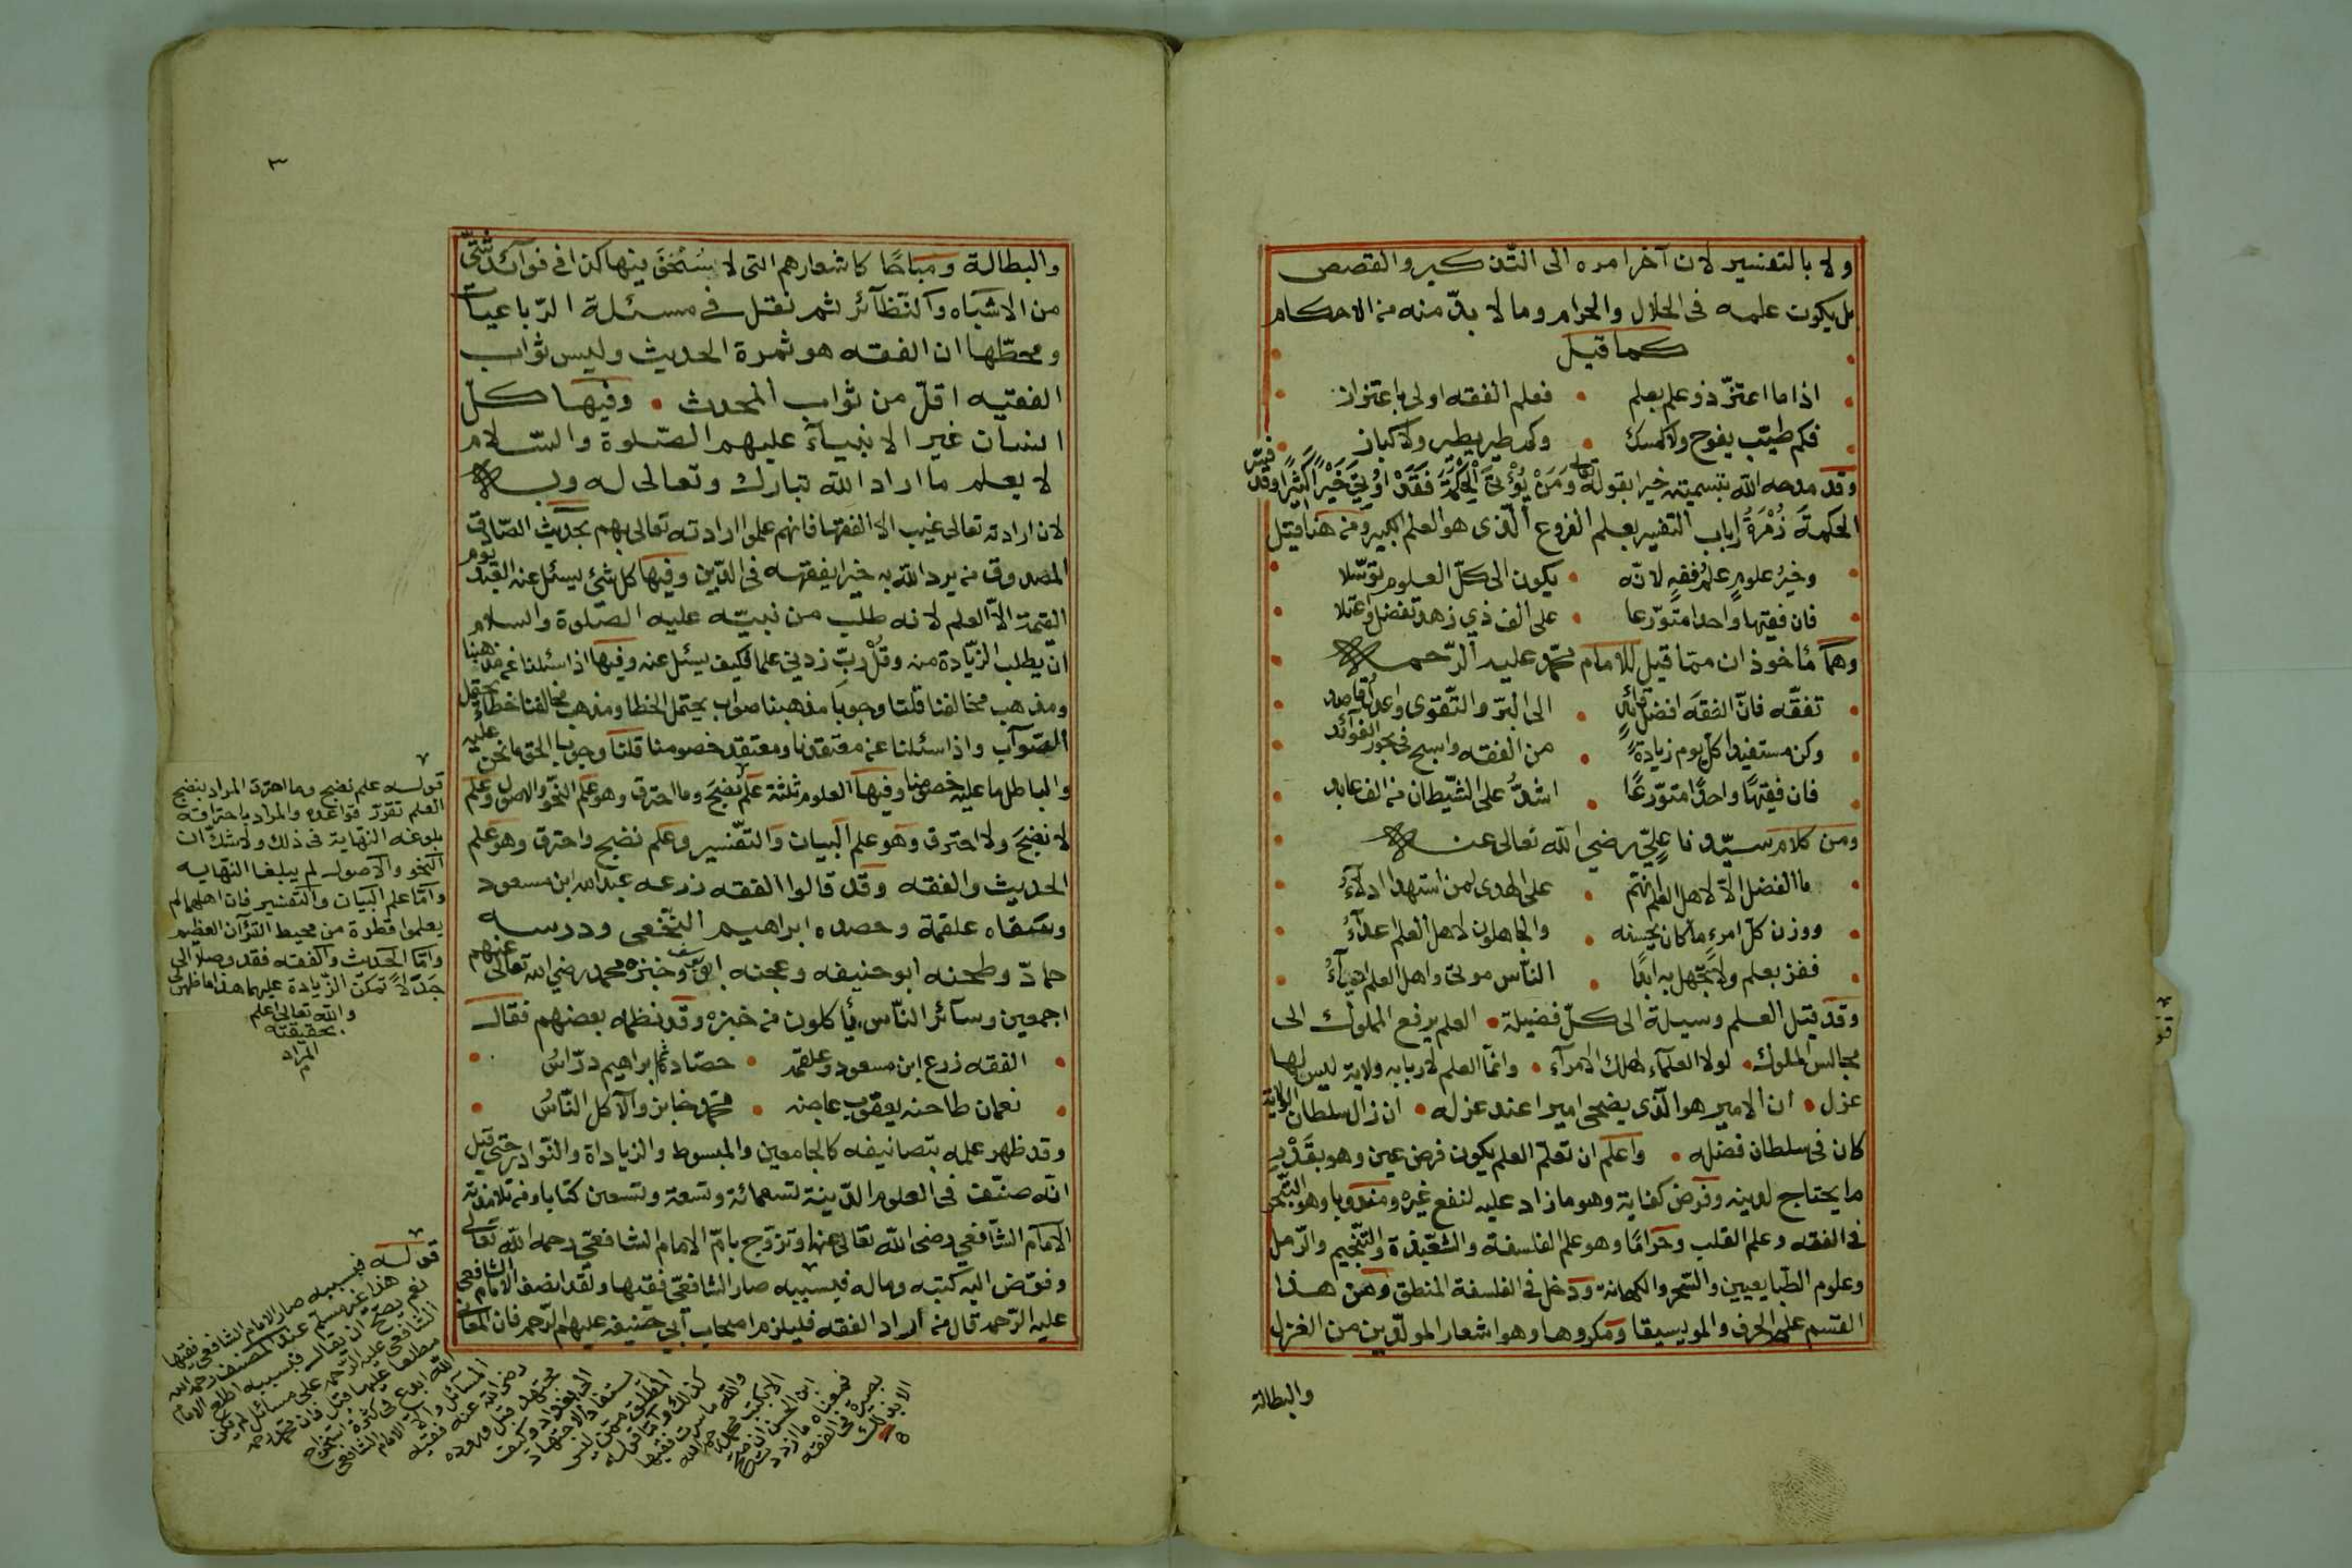 ولا بالتفسير لان آخر امره الى التذكير والقصص
بل يكون علمه فى الحلال والحرام وما لا بدّ منه من الاحكام
كما قيل
اذا ما اعتزّ ذو علم بعلم • فعلم الفقه اولى باعتزاز
فكم طيب يفوح ولا كمسك • وكم طير يطير ولا كباز
وقد مدحه الله بتسميته خيرا بقوله تعالى وَمَنْ يُؤْتَ الْحِكْمَةَ فَقَدْ اُوتِيَ خَيْرًا كَثِيرًا وقد فسّر
الحكمةَ زُمْرَةُ ارباب التفسير بعلم الفروع الّذى هو العلم الكبير ومن هنا قيل
وخيرُ علومٍ علمُ فقهٍ لانّه • يكون الى كلّ العلوم توسّلا
فان فقيها واحدا متورّعا • على الف ذي زهد تفضل واعتلا
وهما مأخوذان ممّا قيل للامام محمّد عليه الرّحمه
تفقّه فانّ الفقه افضل قائدٍ • الى البرّ والتّقوى واعدل قاصد
وكن مستفيدا كلّ يوم زيادةً • من الفقه واسبح في بحور الفوآئد
فان فقيهًا واحدًا متورّعًا • اشدُّ على الشّيطان من الف عابد
ومن كلام سيّدنا عليّ رضي الله تعالى عنه
ما الفضل الاّ لاهل العلم انّهم • على الهدى لمن استهدا ادلاّءُ
ووزن كلّ امرءٍ ما كان يحسنه • والجاهلون لاهل العلم اعدآءُ
ففز بعلم ولا تجهل به ابدًا • النّاس موتى واهل العلم احيآءُ
وقد قيل العلم وسيلة الى كلّ فضيلة • العلم يرفع المملوك الى
مجالس الملوك • لولا العلمآء لهلك الامرآء • وانّما العلم لاربابه ولاية ليس لها
عزل • ان الامير هو الّذى يضحى اميرا عند عزله • ان زال سلطان الولاية
كان فى سلطان فضله • واعلم ان تعلّم العلم يكون فرض عين وهو بقَدْرِ
ما يحتاج لدينه وفرض كفاية وهو ما زاد عليه لنفع غيره ومندوبا وهو التّبحّر
فى الفقه وعلم القلب وحرامًا وهو علم الفلسفة والشّعبذة والتّنجيم والرّمل
وعلوم الطّبايعيين والسّحر والكهانة ودخل فى الفلسفة المنطق ومن هذا
القسم علم الحرف والمويسيقا ومكروها وهو اشعار المولّدين من الغزل
والبطالة
٣
والبطالة ومباحًا كاشعارهم التى لا يستخفّ فيها كذا فى فوآئد شتّى
من الاشباه والنّظآئر ثم نقل فى مسئلة الرّباعيات
ومحطّها ان الفقه هو ثمرة الحديث وليس ثواب
الفقيه اقلّ من ثواب المحدث • وفيها كلّ
انسان غير الانبيآء عليهم الصّلوة والسّلام
لا يعلم ما اراد الله تبارك وتعالى له وبه
لان ارادته تعالى غيب الا الفقها فانهم علموا ارادته تعالى بهم بحديث الصّادق
المصدوق من يرد الله به خيرا يفقهه فى الدّين وفيها كل شئ يسئل عنه العبد يوم
القيمة الاّ العلم لانه طلب من نبيّه عليه الصّلوة والسلام
ان يطلب الزّيادة منه وقُلْ ربّ زدني علما فكيف يسئل عنه وفيها اذا سئلنا عن مذهبنا
ومذهب مخالفنا قلنا وجوباً مذهبنا صواب يحتمل الخطا ومذهب مخالفنا خطاء يحتمل
الصّوآب واذا سئلنا عن معتقدنا ومعتقد خصومنا قلنا وجوبا الحق ما نحن عليه
والباطل ما عليه خصومنا وفيها العلوم ثلثة علم نضج وما احترق وهو علم النّحو والاصول وعلم
لا نضج ولا احترق وهو علم البيان والتّفسير وعلم نضج واحترق وهو علم
الحديث والفقه وقد قالوا الفقه زرعه عبد الله ابن مسعود
وسقاه علقمة وحصده ابراهيم النّخعى ودرسه
حمادّ وطحنه ابو حنيفه وعجنه ابو يوسف وخبزه محمد رضي الله تعالى عنهم
اجمعين وسآئر النّاس يأكلون من خبزه وقد نظمه بعضهم فقال
الفقه زرع ابن مسعود وعلقمة • حصّاده ثمّ ابراهيم درّاسُ
نعمان طاحنه يعقوب عاجنه • محمّد خابز والآكل النّاسُ
وقد ظهر علمه بتصانيفه كالجامعين والمبسوط والزيادات والنّوادر حتى قيل
انّه صنّف فى العلوم الدّينية تسعمائة وتسعة وتسعين كتابا ومن تلامذته
الامام الشّافعي رضى الله تعالى عنه وتزوّج بامّ الامام الشافعيّ رحمه الله تعالى
وفوّض اليه كتبه وماله فبسببه صار الشافعيّ فقيها ولقد انصف الامام الشّافعي
عليه الرّحمه قال من أراد الفقه فليلزم اصحاب أبي حنيفة عليهم الرّحمه فان المعانى
قوله علم نضج وما احترق المراد بنضج
العلم تقرّر قواعده والمراد باحتراقه
بلوغه النهاية فى ذلك ولا شكّ ان
النحو والاصول لم يبلغا النهايه
وامّا علم البيان والتفسير فان اهلهما لم
يعلموا قطرة من محيط القرآن العظيم
وامّا الحديث والفقه فقد وصلا الى
حدّ لا تمكن الزّيادة عليهما هذا ما ظهر لى
والله تعالى اعلم
بحقيقة
المراد
قوله فبسببه صار الامام الشافعي فقيها
هذا غير مسلّم عند المصنف رحمه الله
نعم يصحّ ان يقال فبسببه اطلع الامام
الشّافعي عليه الرّحمه على مسائل لم يكن
مطلعا عليها قبل فان محمد رحمه
الله ابدع فى كثرة استخراج
المسآئل والا فالامام الشّافعي
رضى الله عنه فقيه
مجتهد قبل وروده
الى بغداد وكيف
يستفاد الاجتهاد
المطلق ممّن ليس
كذلك وامّا قوله
والله ما صرت فقيها
الا بكتب محمد رحمه الله
ابن الحسن ان صحّ
فمعناه ما ازددت
بصيرة فى الفقه
الا بذلك